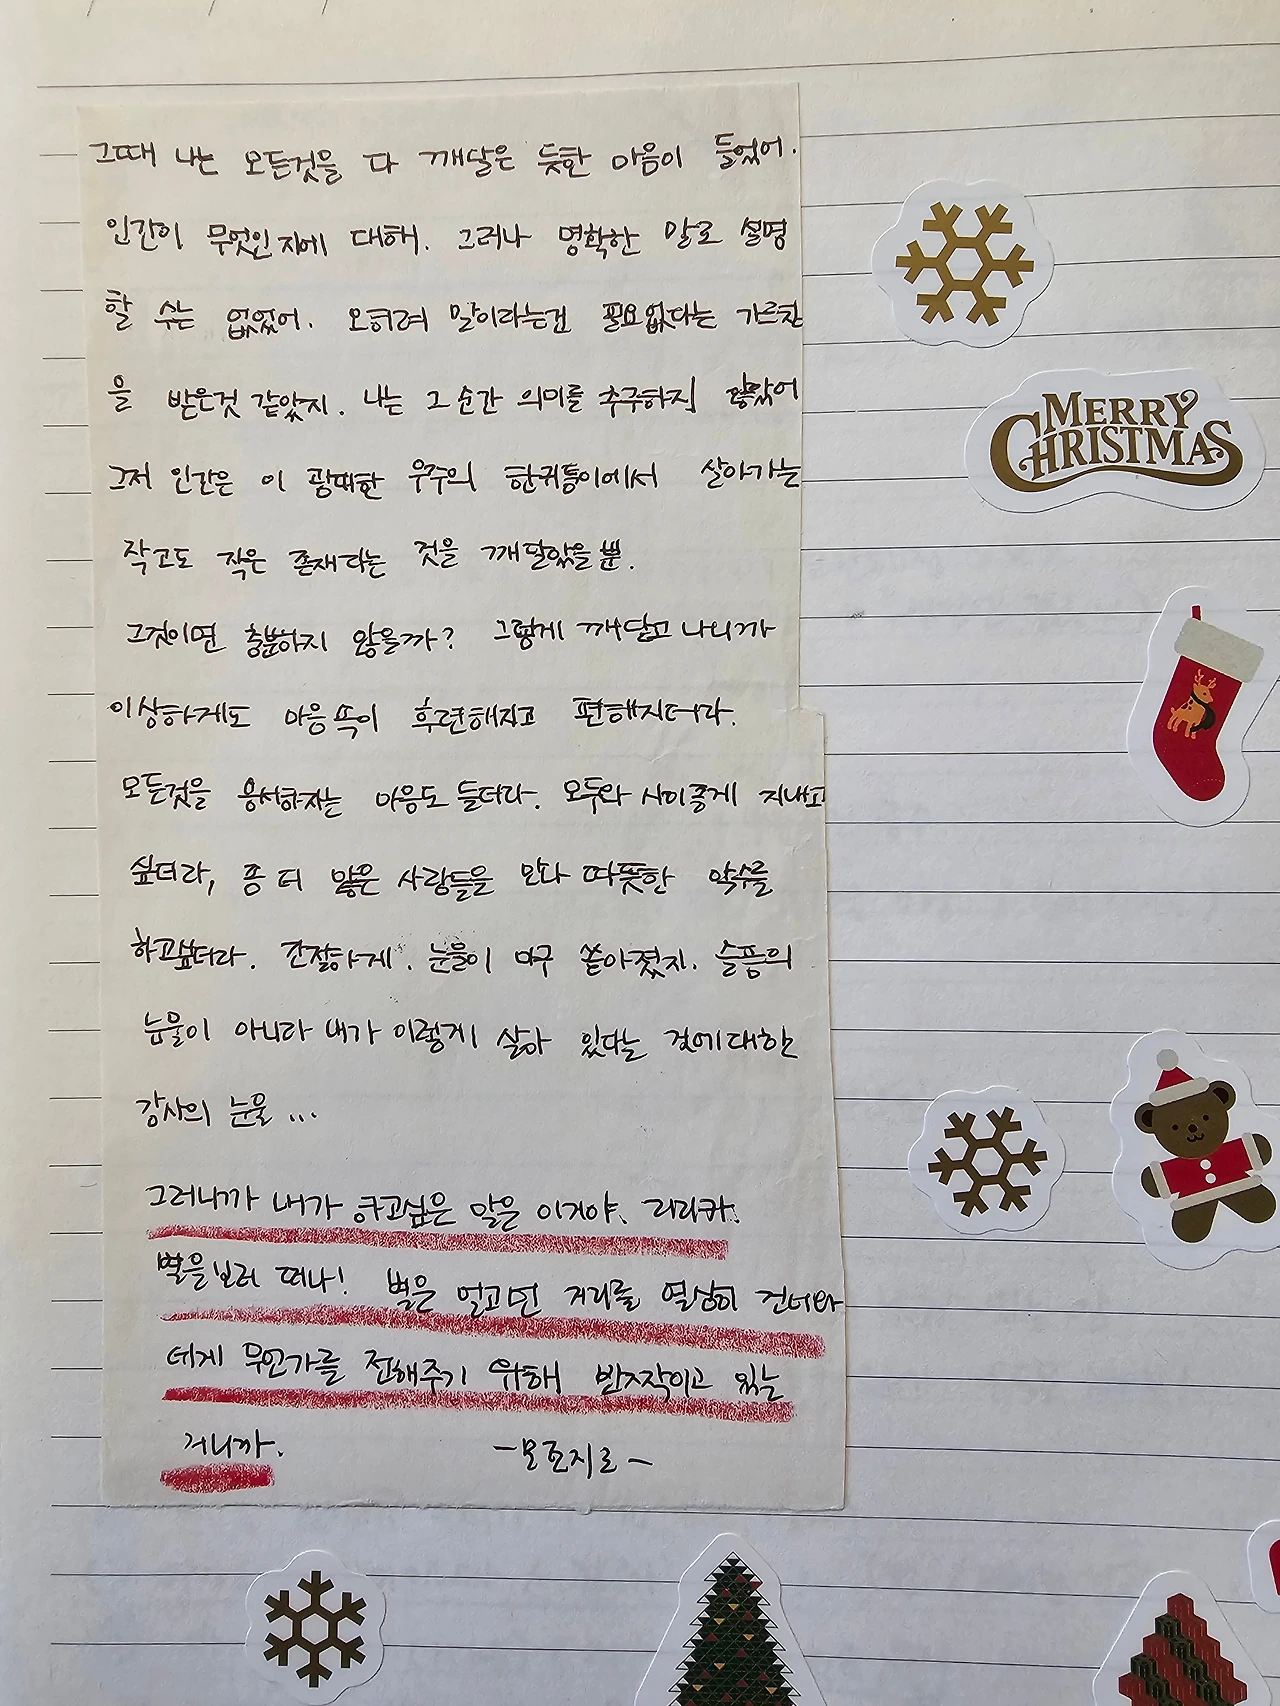 그때 나는 모든것을 다 깨달은 듯한 마음이 들었어.
인간이 무엇인지에 대해. 그러나 명확한 말로 설명
할 수는 없었어. 오히려 말이라는건 필요없다는 가르침
을 받은것 같았지. 나는 그 순간 의미를 추구하지 않았어
그저 인간은 이 광대한 우주의 한귀퉁이에서 살아가는
작고도 작은 존재라는 것을 깨달았을 뿐.
그것이면 충분하지 않을까? 그렇게 깨닫고 나니까
이상하게도 마음 속이 후련해지고 편해지더라.
모든것을 용서하자는 마음도 들더라. 모두와 사이좋게 지내고
싶더라, 좀 더 많은 사람들을 만나 따뜻한 악수를
하고싶더라. 간절하게. 눈물이 마구 쏟아졌지. 슬픔의
눈물이 아니라 내가 이렇게 살아 있다는 것에대한
감사의 눈물...
그러니까 내가 하고싶은 말은 이거야. 리리카.
별을보러 떠나! 별은 멀고먼 거리를 열심히 건너와
네게 무언가를 전해주기 위해 반짝이고 있는
거니까.
-모효지로-
MERRY
CHRISTMAS